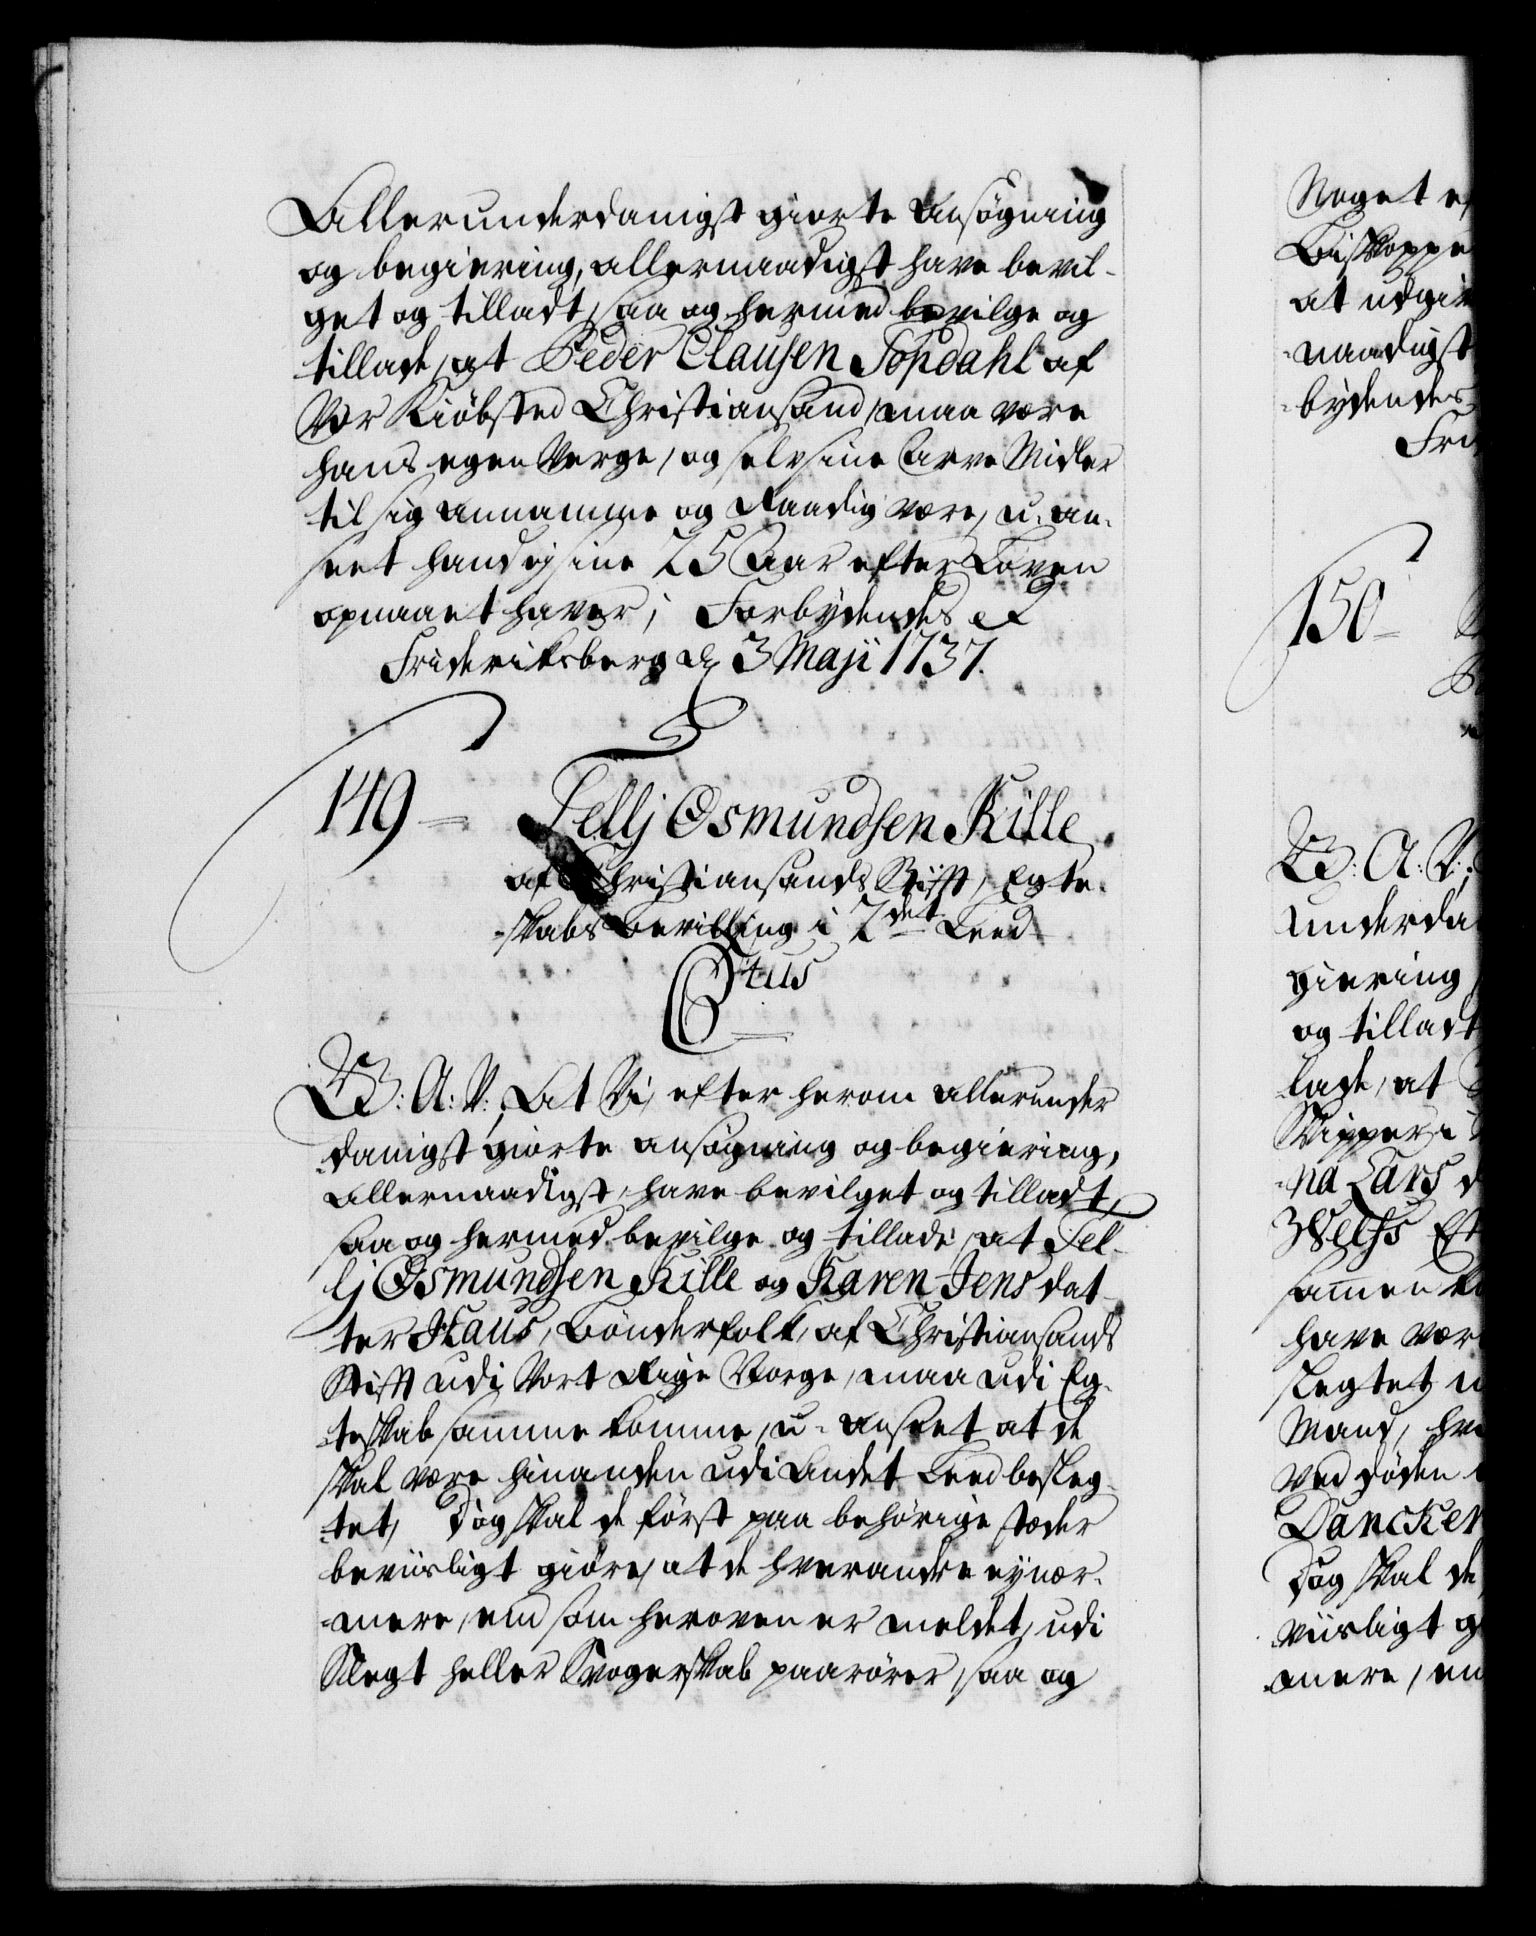 Allerunderdanigst giorte Ansøgning
og begiering, allernaadigst have bevil-
get og tilladt, saa og hermed bevilge og
tillade, at Peder Clausen Topdahl af
Vor Kiøbsted Christiansand, maa være
hans egen Verge, og selv sine Arve Midler
til sig annamme og Raadig være, u-an-
seet hand ej sine 25 Aar efter Loven
opnaaet haver; Forbydendes &
Friderichsberg d. 3 Maji 1737.
149 Tellj Osmundsen Kille
af Christiansands Stifft, Egte-
skabs Bevilling i 2det Leed
C6tus
V: A: V:, At Vi, efter herom allerunder
danigst giorte ansøgning og begiering,
allernaadigst, have bevilget og tilladt,
saa og hermed bevilge og tillade, at Tel-
lj Osmundsen Kille og Karen Jens dat-
ter Haus, Bønderfolk, af Christiansands
Stifft udi Vort Rige Norge, maa udi Eg-
teskab sammenkomme, u-anseet at de
skal være hinanden udi Andet Leed besleg-
tet, Dog skal de først paa behørige stæder
beviisligt giøre, at de hverandre ey nær-
mere, end som heroven er meldet, udi
Slegt heller Svogerskab paarører, saa og
Noget ef
Biskoppe
at udgiv
naadigst
bydendes
Fri
150
V: A: V:,
underda
giering
og tilladt
lade, at
Skipper i
na Lars d
Welhs Et
sammen ko
have vær
slegtet m
Mand, hv
ved døden
Dancker
Dog skal de
viisligt g
mere, en